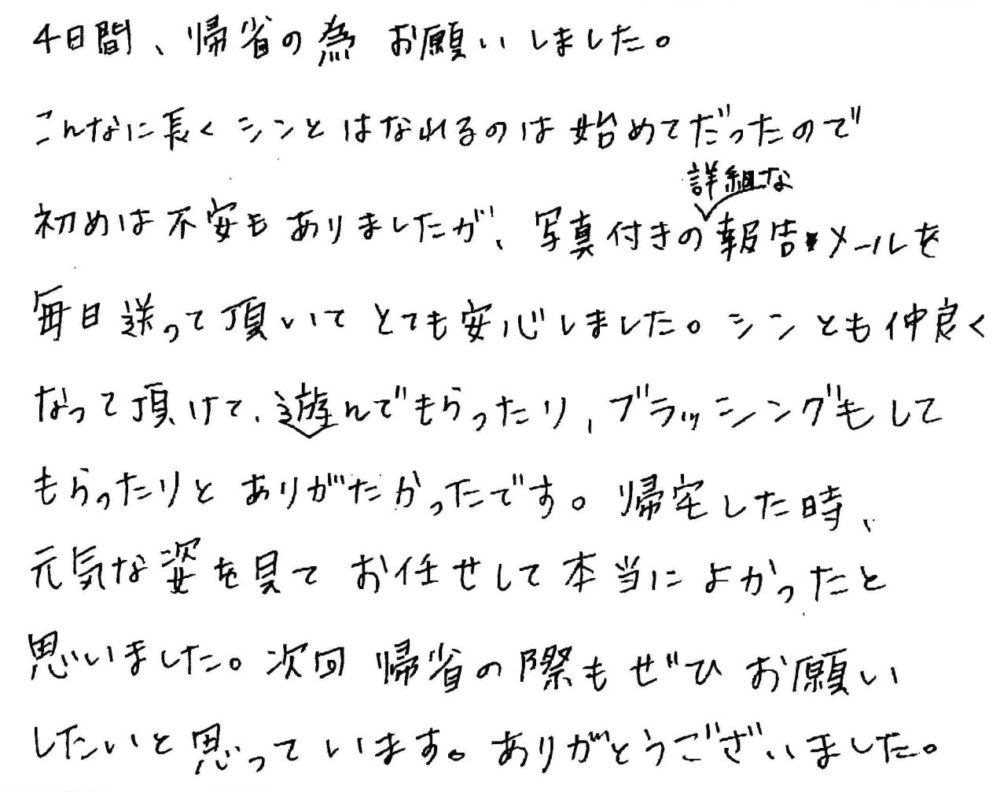 4日間、帰省の為 お願いしました。
こんなに長く シンと はなれるのは 始めてだったので
詳細な
初めは 不安も ありましたが、写真付きの報告メールを
毎日 送って 頂いて とても 安心しました。シンとも 仲良く
なって 頂けて、遊んでもらったり、ブラッシングもして
もらったりと ありがたかったです。帰宅した時、
元気な姿を見て お任せして 本当に よかったと
思いました。次回 帰省の際も ぜひ お願い
したいと思っています。ありがとうございました。